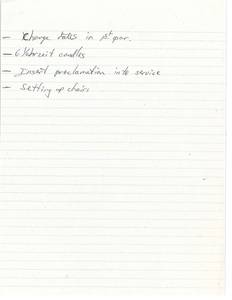 - Change dates in 1st par.
- 6 Yahrzeit candles
- Insert proclamation into service
- Setting up chairs